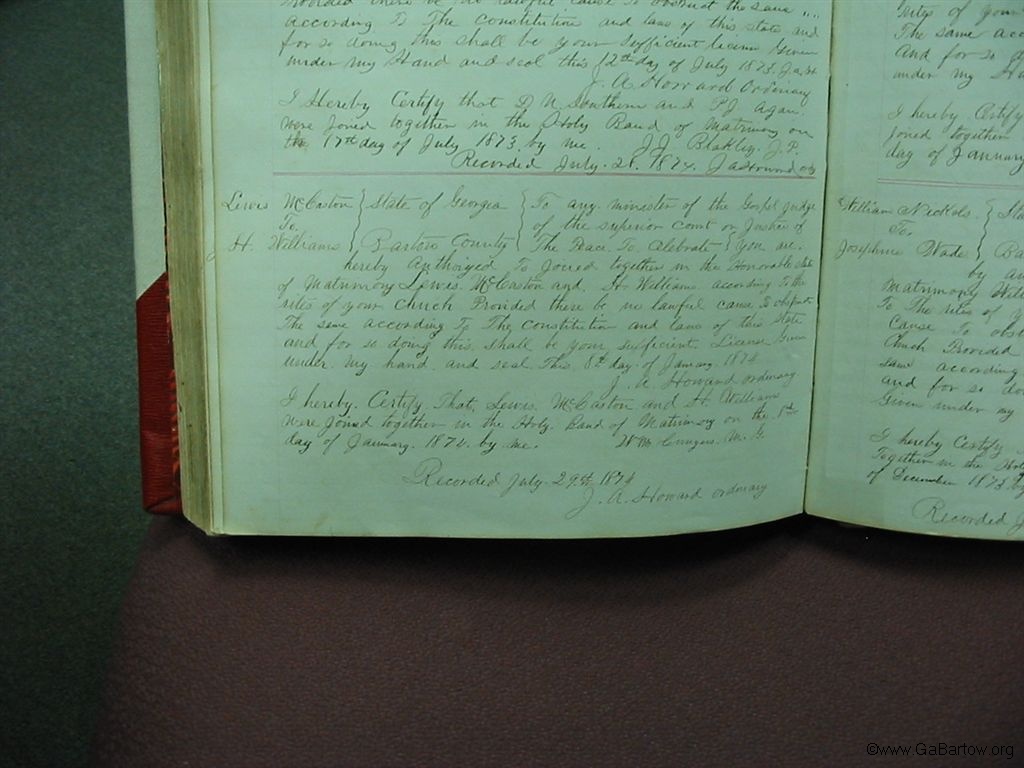 according To The constitution and laws of this state and
for so doing this shall be your sufficient license Given
under my Hand and seal this 12th day of July 1873
J. A. Howard Ordinary
I Hereby Certify that D. N. Southern and P. J. Agan
were Joined together in the Holy Band of Matrimony on
the 17th day of July 1873 by me. J. J. Blakley J. P.
Recorded July 28. 1874. J A Howard ord
Lewis McCaston State of Georgia To any minister of the Gospel Judge
To of the superior court or Justice of
H. Williams Bartow County The Peace. To Celebrate You are
hereby Authorized To Joined together in the Honorable state
of Matrimony Lewis McCaston and H Williams according To the
rites of your Church Provided there be no lawful cause To
The same according To The constitution and laws of this state
and for so doing this shall be your sufficient License Given
under my hand and seal This 8th day of January 1874
J. A Howard ordinary
I hereby. Certify That, Lewis McCaston and H Williams
were Joined together in the Holy Band of Matrimony on the 8th
day of January. 1874 by me. M. G
Recorded July 29th 1874
J. A. Howard ordinary
rites of your
The same acc
And for so
under my
I hereby Certify
Joined together
day of January
William Nichols
To
Josephine Wade Ba
by
Matrimony Will
To The rites of
Cause To obst
Church Provided
same according
and for so do
Given under my
I hereby Certify
Together in the Holy
of December 1873
Recorded J
©www.GaBartow.org